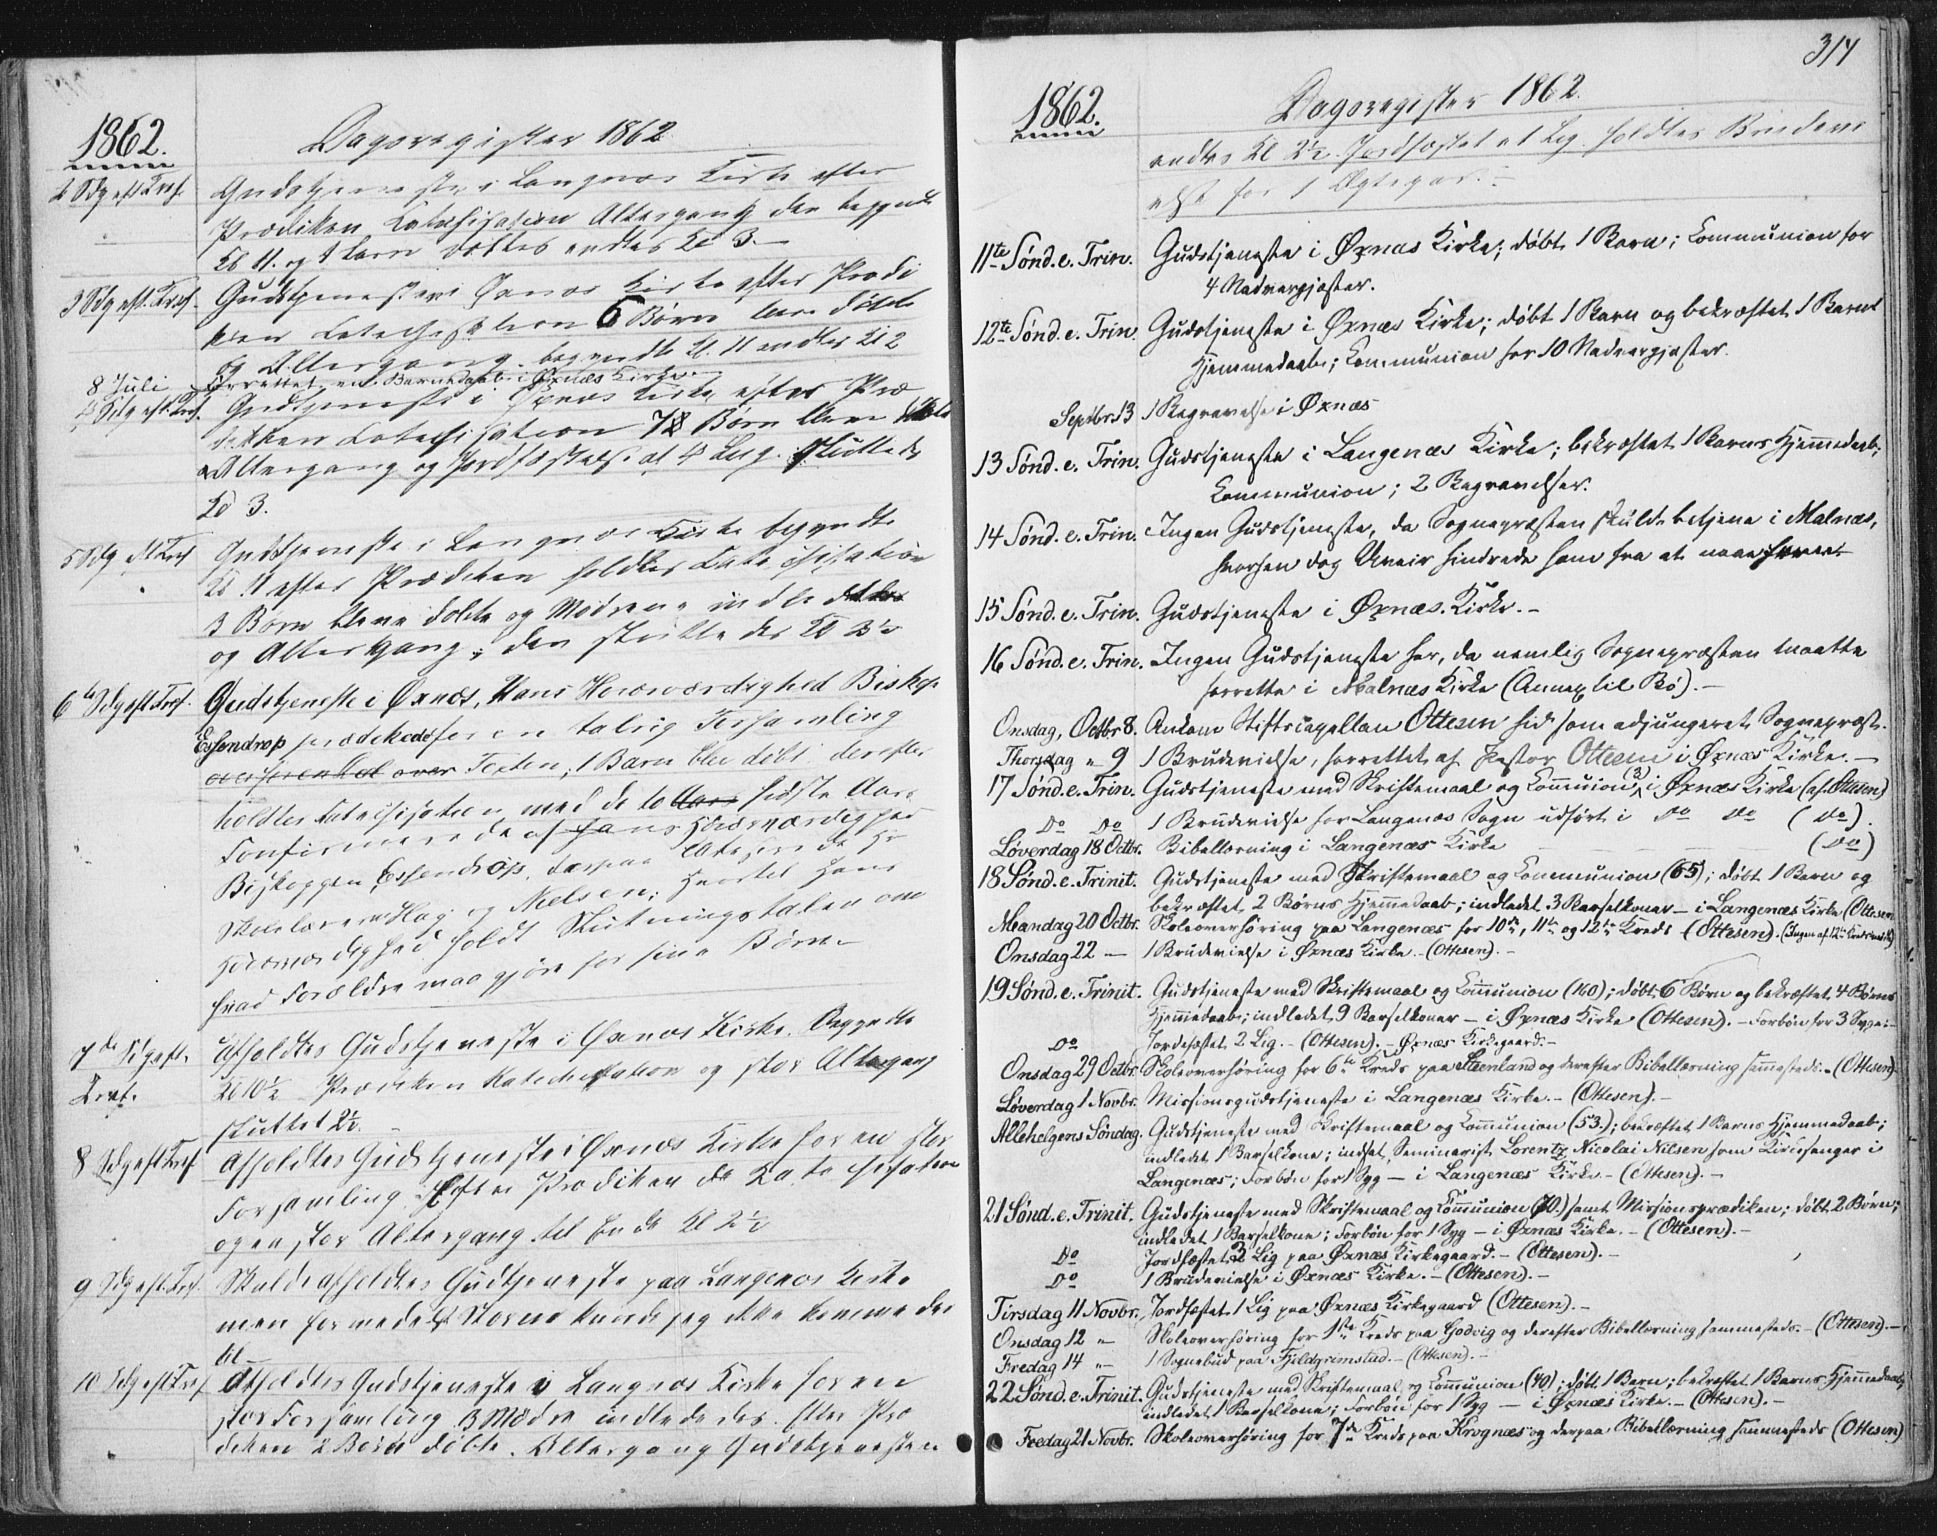 1862.
Dagsregister 1862
2 Sdg eft Tref. Gudstjeneste i Langnæs Kirke efter
Prædiken Catechisation Altergang den begyndte
Kl 11. og 1 Barn døbtes endtes Kl 3.-
3 Sdg eft. Tref. Gudstjeneste i Øxnæs Kirke efter Prædi
ken Catechisation 6 Børn bleve døbte
og Altergang. begyndte Kl. 11 endtes Kl 2
8 Juli Forrettet en Barnedaab i Øxnæs Kirke.
4 Sdg eft Tref. Gudstjeneste i Øxnæs Kirke, efter Præ
diken Catechisation 7 Børn bleve døbte
Altergang og Jordfæstelse af 4 Lig. Sluttede
Kl 3.
5 Sdg eft Tref Gudstjeneste i Langnæs Kirke begyndte
Kl 11 efter Prædiken holdtes Catechisation
3 Børn bleve døbte og Mødrene indledte
og Altergang; den sluttedes Kl 3½
6te Sdg eft Tref. Gudstjeneste i Øxnæs, Hans Høiærværdighed Biskop
Essendrop prædikede for en talrig Forsamling
over Texten; 1 Barn blev døbt; derefter
holdtes Catechisation med de to sidste Aars
Confirmerede af Hans Høiærværdighed
Biskoppen Essendrop, derpaa Catechiserede
Skolelærerne Hag og Nielsen; hvortil Hans
Høiærværdighed holdt Slutningstalen om
hvad Forældre maa gjøre for sine Børn.-
7de Sdg eft. Afholdtes Gudstjeneste i Øxnæs Kirke. Begyndte
Tref. Kl 10½ Prædiken Katechisation og stor Altergang
sluttet 2½. -
8 Sdg eft Tref Afholdtes Gudstjeneste i Øxnæs Kirke for en stor
Forsamling. Efter Prædiken Katechisation
og en stor Altergang til Ende Kl 2½
9 Sdg eft. Tref. Skulde afholdtes Gudstjeneste paa Langenæs Kirke
men formedelst Storm kunde jeg ikke komme der
til
10 Sdg eft Tref Afholdtes Gudstjeneste i Langnæs Kirke for en
stor Forsamling 3 Mødre indlededes. Efter Præ
diken 2 Børn døbte. Altergang Gudstjenesten
314
1862.
Dagsregister 1862.
endtes Kl 2½. Jordfæstet et Lig. holdtes Brudevi
else for 1 Ægtepar.-
11te Sønd. e. Trin. Gudstjeneste i Øxnæs Kirke; døbt 1 Barn; Communion for
4 Nadvergjæster.
12te Sønd. e. Trin. Gudstjeneste i Øxnæs Kirke; døbt 1 Barn og bekræftet 1 Barns
Hjemmedaab; Communion for 10 Nadvergjæster.
Septbr. 13 1 Begravelse i Øxnæs
13 Sønd. e. Trin. Gudstjeneste i Langenæs Kirke; bekræftet 1 Barns Hjemmedaab;
Communion; 2 Begravelser.
14 Sønd. e. Trin. Ingen Gudstjeneste, da Sognepræsten skulde betjene i Malnæs,
hvorfra dog Uveir hindrede ham fra at naae frem.
15 Sønd. e. Trin. Gudstjeneste i Øxnæs Kirke.-
16 Sønd. e. Trin. Ingen Gudstjeneste her, da nemlig Sognepræsten maatte
forrette i Malnæs Kirke (Annex til Bø).-
Onsdag, Octbr 8. Ankom Stiftscapellan Ottesen hid som adjungeret Sognepræst.
Thorsdag " 9 1 Brudevielse, forrettet af Pastor Ottesen i Øxnæs Kirke.-
17 Sønd. e. Trin. Gudstjeneste med Skriftemaal og Communion (3) i Øxnæs Kirke (af Ottesen)
Do Do 1 Brudevielse for Langenæs Sogn udført i Do Do (Do).
Løverdag 18 Octbr. Bibellæsning i Langenæs Kirke (Do)
18 Sønd. e. Trinit. Gudstjeneste med Skriftemaal og Communion (65); døbt 1 Barn og
bekræftet 2 Børns Hjemmedaab; indledet 3 Barselkoner - i Langenæs Kirke (Ottesen
Mandag 20 Octbr. Skoleoverhøring paa Langenæs for 10de, 11te og 12te Kreds (Ottesen). (Ingen af 12te Kreds mødte)
Onsdag 22 - 1 Brudevielse i Øxnæs Kirke. - (Ottesen). -
19 Sønd. e. Trinit. Gudstjeneste med Skriftemaal og Communion (160); døbt 6 Børn og bekræftet 4 Børns
Hjemmedaab; indledet 9 Barselkoner - i Øxnæs Kirke (Ottesen). - Forbøn for 3 Syge.-
Do Jordfæstet 2 Lig. - (Ottesen). - Øxnæs Kirkegaard.-
Onsdag 29 Octbr. Skoleoverhøring for 6te Kreds paa Steenland og derefter Bibellæsning sammesteds. - (Ottesen)
Løverdag 1 Novbr. Missionsgudstjeneste i Langenæs Kirke. - (Ottesen). -
Allehelgens Søndag. Gudstjeneste med Skriftemaal og Communion (53.); bekræftet 1 Barns Hjemmedaab;
indledet 1 Barselkone; indsat Seminarist Lorentz Nicolai Nilsen som Kirkesanger i
Langenæs; Forbøn for 1 Syg - i Langenæs Kirke - (Ottesen). -
21 Sønd. e. Trinit. Gudstjeneste med Skriftemaal og Communion (70.) samt Missionsprædiken; døbt 2 Børn;
indledet 1 Barselkone; Forbøn for 1 Syg - i Øxnæs Kirke. - (Ottesen). -
Do Jordfæstet 3 Lig paa Øxnæs Kirkegaard. - (Ottesen). -
Do 1 Brudevielse i Øxnæs Kirke. - (Ottesen). -
Tirsdag 11 Novbr. Jordfæstet 1 Lig paa Øxnæs Kirkegaard (Ottesen). -
Onsdag 12 " Skoleoverhøring for 1ste Kreds paa Godvig og derefter Bibellæsning sammesteds. - (Ottesen). -
Fredag 14 " 1 Sognebud paa Fjildgrimstad. - (Ottesen). -
22 Sønd. e. Trinit. Gudstjeneste med Skriftemaal og Communion (40); døbt 1 Barn; bekræftet 1 Barns Hjemmedaab;
indledet 1 Barselkone; Forbøn for 1 Syg - i Øxnæs Kirke. - (Ottesen). -
Fredag 21 Novbr. Skoleoverhøring for 7de Kreds paa Krognæs og derpaa Bibellæsning sammesteds (Ottesen)